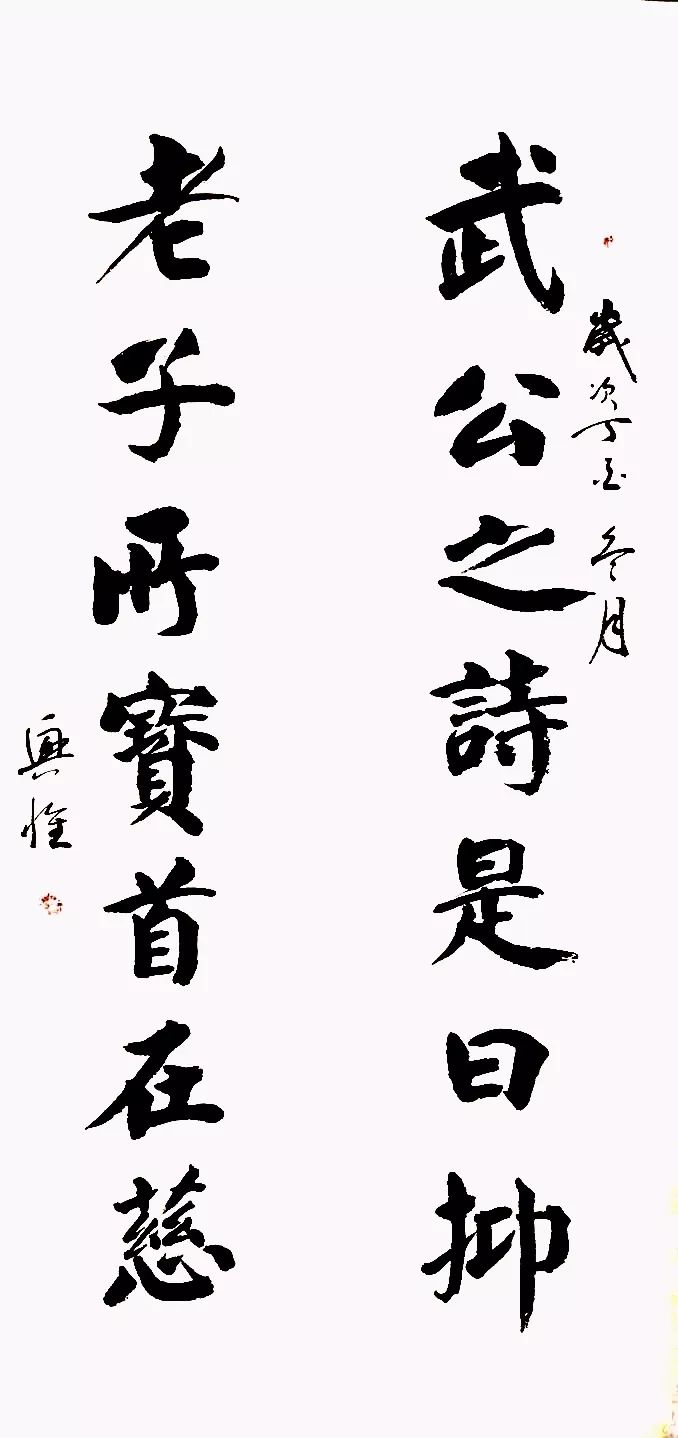 歲次丁酉冬月
武公之詩是曰抑
老子所寶首在慈
興惟